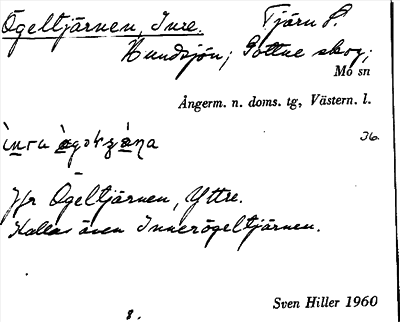 Ögeltjärnen, Inre. Tjärn S.
Hundsjön; Gottne skog;
Mo sn
Ångerm. n. doms. tg, Västern. l.
36.
Jfr Ögeltjärnen, Yttre.
Kallas även Innerögeltjärnen.
8.
Sven Hiller 1960